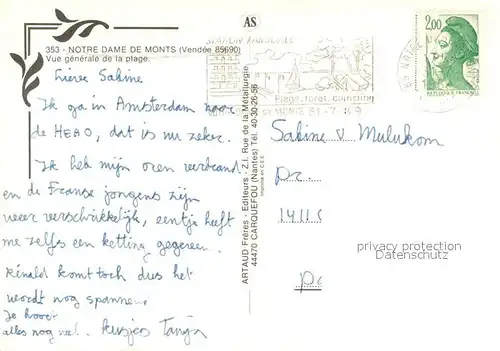 AS
353 - NOTRE DAME DE MONTS (Vendée 85690)
Vue générale de la plage.
Lieve Sabine
Ik ga in Amsterdam naar
de HEAO, dat is nu zeker.
Ik heb mijn oren verbrand
en de Franse jongens zijn
weer verschrikkelijk, eentje heeft
me zelfs een ketting gegeven.
Rénald komt toch dus het
wordt nog spannend
Je hoort
alles nog wel. kusjes Tanja
ARTAUD Frères - Editeurs - Z.I. Rue de la Métallurgie
44470 CARQUEFOU (Nantes) Tél. 40-30-26-56
Imprimé en C.E.E.
STATION FAMILIALE
Plage, forêt, camping
31-7
2,00
REPUBLIQUE FRANCAISE
Sabine v Mulukom
Pr.
1411C
privacy protection
Datenschutz